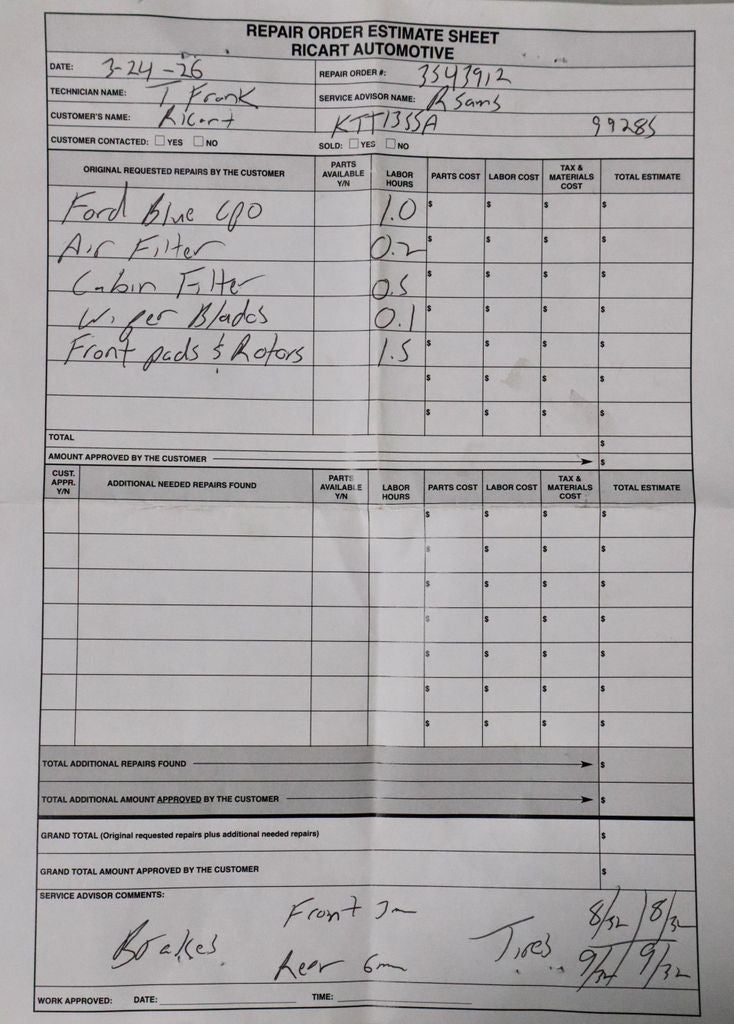 REPAIR ORDER ESTIMATE SHEET
RICART AUTOMOTIVE
DATE: 3-24-26 REPAIR ORDER #: 3543912
TECHNICIAN NAME: T Frank SERVICE ADVISOR NAME: R Sams
CUSTOMER'S NAME: Ricart KTT1355A 99285
CUSTOMER CONTACTED: ☐ YES ☐ NO SOLD: ☐ YES ☐ NO
ORIGINAL REQUESTED REPAIRS BY THE CUSTOMER PARTS AVAILABLE Y/N LABOR HOURS PARTS COST LABOR COST TAX & MATERIALS COST TOTAL ESTIMATE
Ford Blue CPO 1.0 $ $ $ $
Air Filter 0.2 $ $ $ $
Cabin Filter 0.5 $ $ $ $
Wiper Blades 0.1 $ $ $ $
Front pads & Rotors 1.5 $ $ $ $
$ $ $ $
$ $ $ $
TOTAL $
AMOUNT APPROVED BY THE CUSTOMER $
CUST. APPR. Y/N ADDITIONAL NEEDED REPAIRS FOUND PARTS AVAILABLE Y/N LABOR HOURS PARTS COST LABOR COST TAX & MATERIALS COST TOTAL ESTIMATE
$ $ $ $
$ $ $ $
$ $ $ $
$ $ $ $
$ $ $ $
$ $ $ $
$ $ $ $
TOTAL ADDITIONAL REPAIRS FOUND $
TOTAL ADDITIONAL AMOUNT APPROVED BY THE CUSTOMER $
GRAND TOTAL (Original requested repairs plus additional needed repairs) $
GRAND TOTAL AMOUNT APPROVED BY THE CUSTOMER $
SERVICE ADVISOR COMMENTS:
Front 3m 8/32 8/32
Brakes Tires
Rear 6mm 9/32 9/32
WORK APPROVED: DATE: TIME: